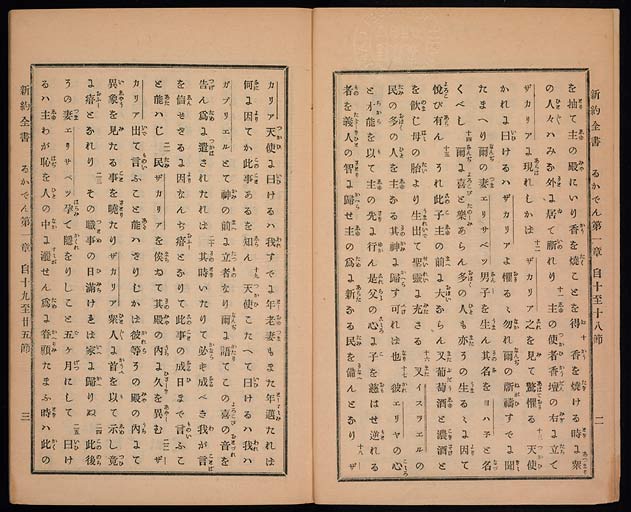 新約全書 るかでん第一章 自十至十八節 二
を抽て主の殿にいり香を燒ことを得 十 香を燒ける時に衆
の人々ハみな外に居て祈れり 十一 主の使者香壇の右に立て
ザカリアに現れしかば 十二 ザカリア之を見て驚懼る 十三 天使
かれに曰けるハザカリアよ懼るゝ勿れ爾の祈禱すでに聞
たまへり爾の妻エリサベツ男子を生ん其名をヨハ子と名
くべし 十四 爾に喜と樂あらん多の人も亦その生るゝに因て
悅び有ん 十五 それ此子主の前に大ならん又葡萄酒と濃酒と
を飮じ母の胎より生出て聖靈に充さる 十六 又イスラエルの
民の多の人を主なる其神に歸す可れは也 十七 彼エリヤの心
と才能を以て主の先に行ん是父の心に子を慈はせ逆れる
者を義人の智に歸せ主の爲に新なる民を備んとなり 十八 ザ
カリア天使に曰けるハ我すでに年老妻もまた年邁たれは
何に因てか此事あるを知ん 十九 天使こたへて曰けるハ我ハ
ガブリエルとて神の前に立者なり爾に語てこの喜の音を
告ん爲に遣されたれは 二十 其時いたりて必ず成べき我が言
を信せさるに因なんぢ瘖となりて此事の成日まで言ふこ
と能ハじ 二一 民ザカリアを俟ねて其殿の内に久を異む 二二 ザ
カリア出て言ふこと能ハさりしかは彼等その殿の内にて
異象を見たる事を曉たりザカリア衆人に首を以て示し竟
に瘖となれり 二三 その職事の日滿けれは家に歸りぬ 二四 此後
その妻エリサベツ孕て隱をりしこと五ヶ月にして 二五 曰け
るハ主わが恥を人の中に灑せん爲に眷顧たまふ時ハ此の
新約全書 るかでん第一章 自十九至廿五節 三